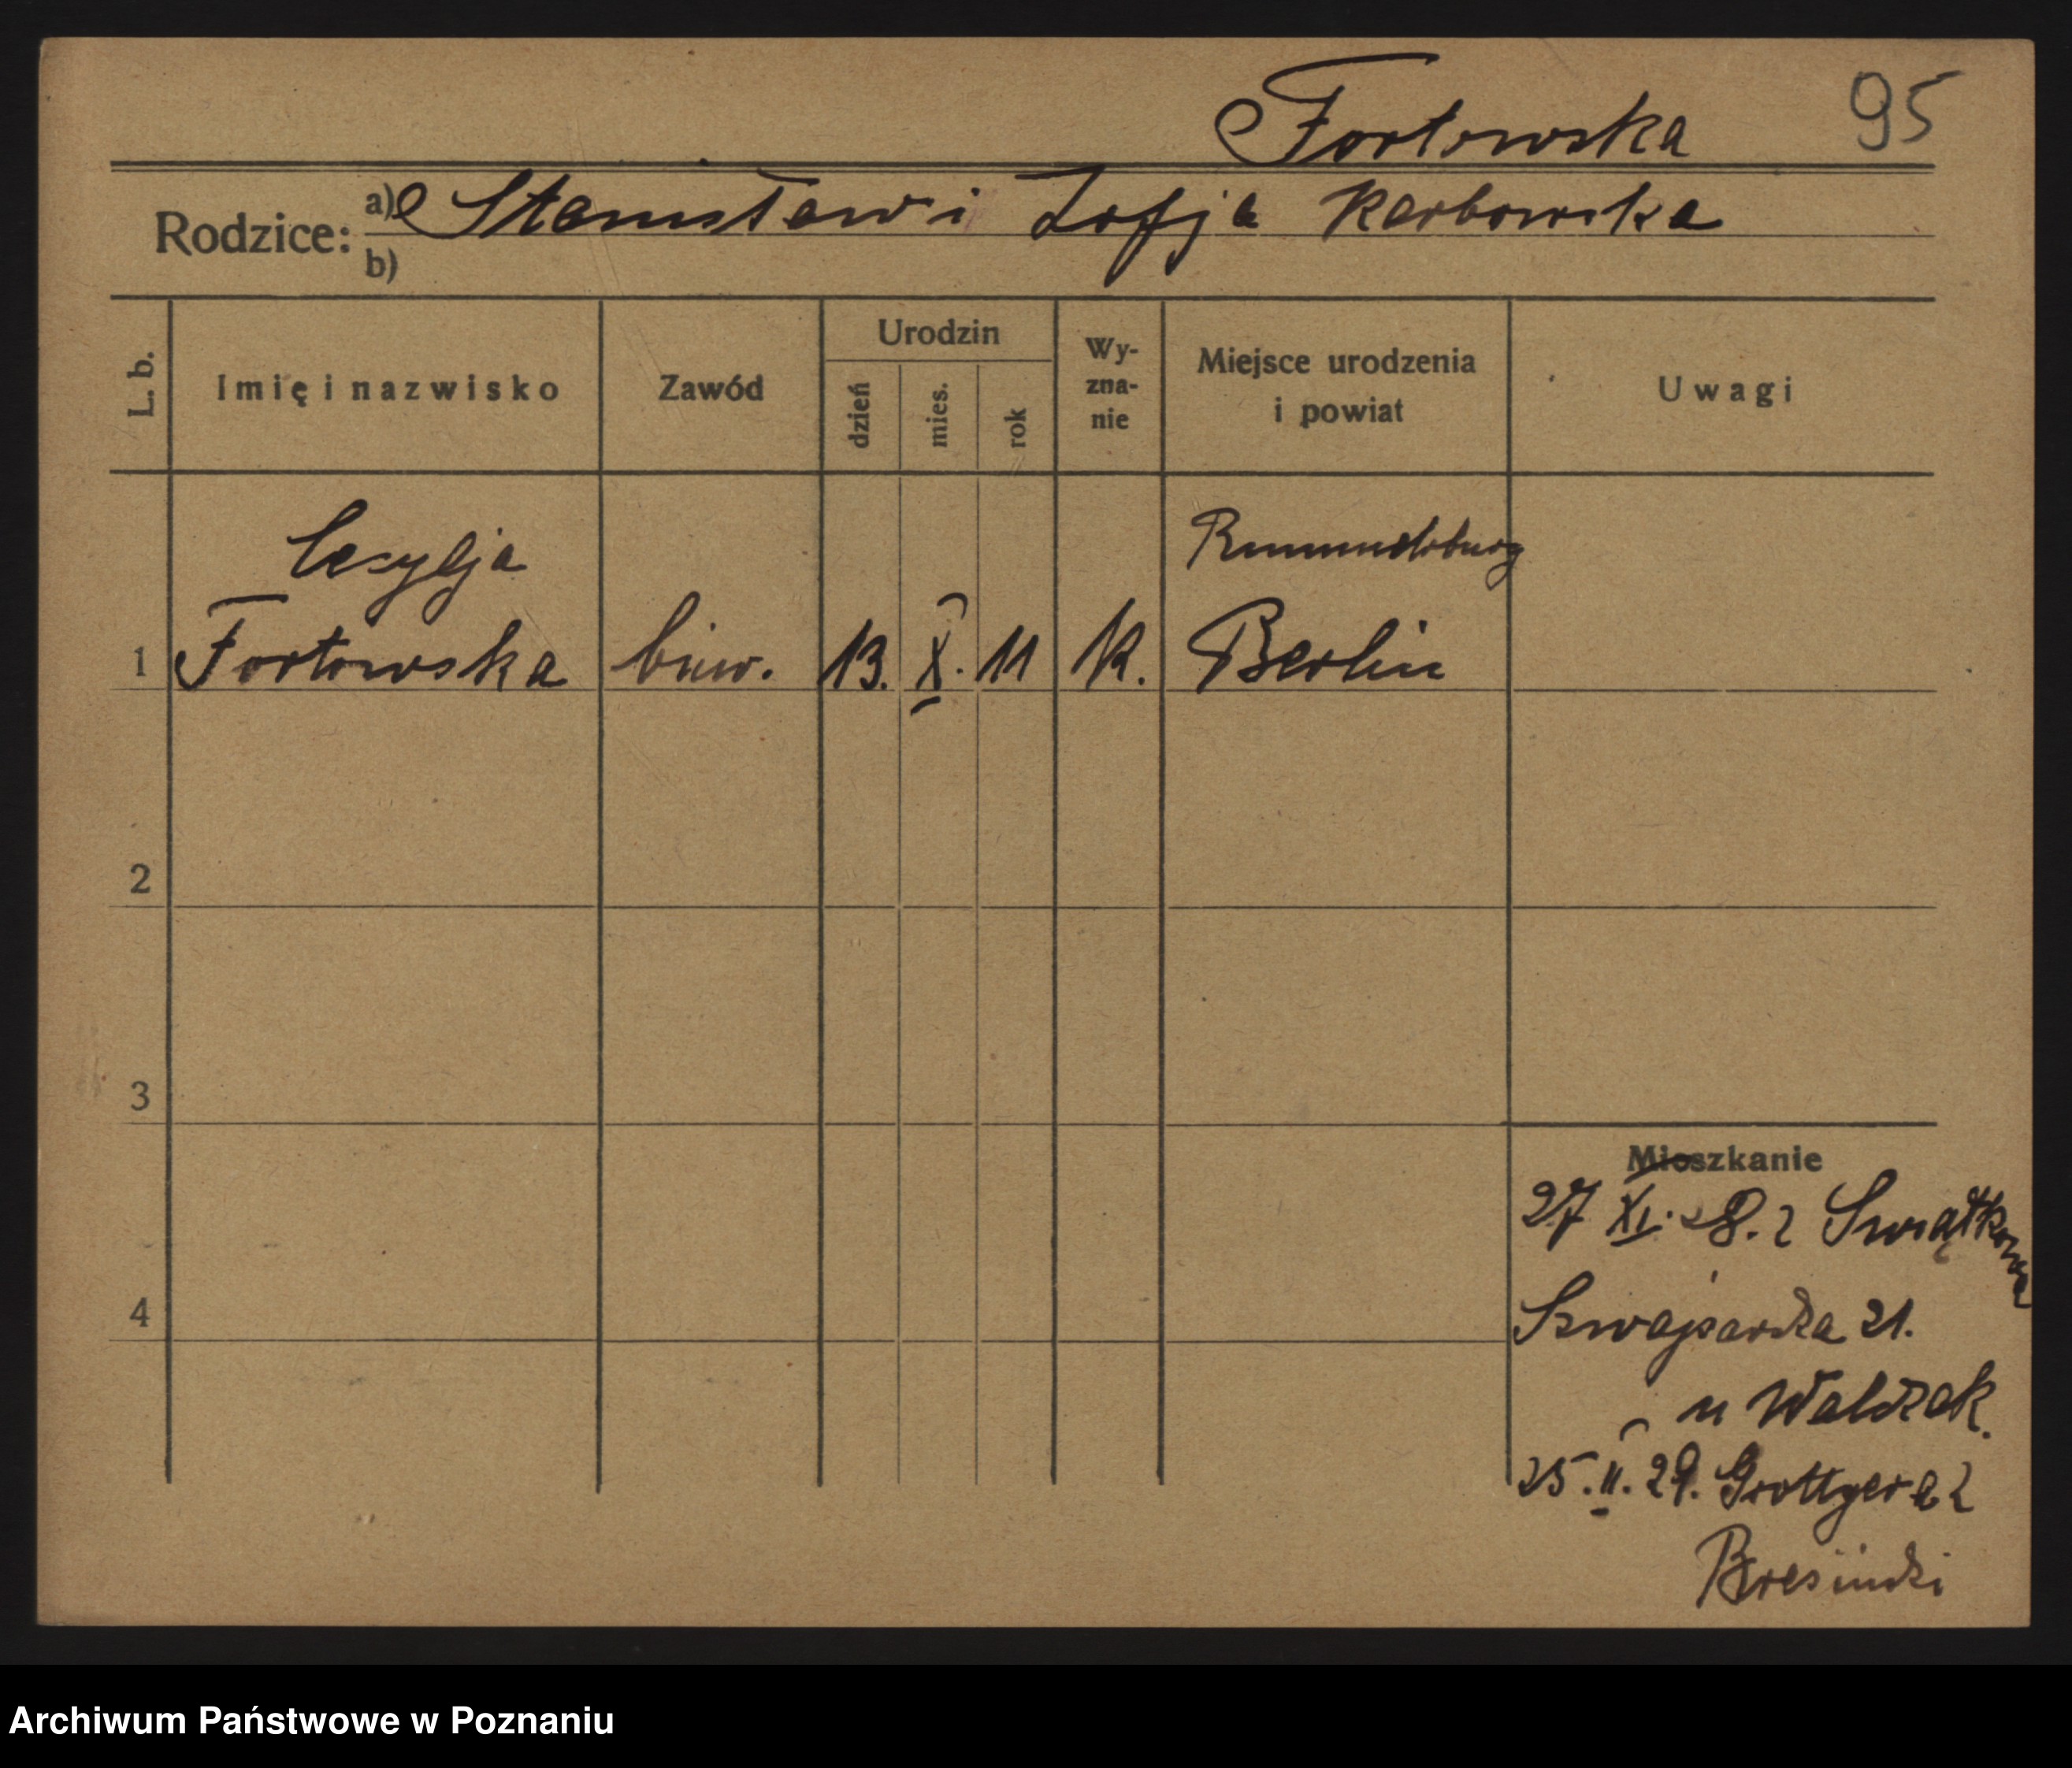 Fortowska 95
Rodzice: a) Stanisław i Zofja Karbowska
b)
L. b. Imię i nazwisko Zawód Urodzin dzień mies. rok Wyzna-nie Miejsce urodzenia i powiat Uwagi
Cesylja Rummelsburg
1 Fortowska biuw. 13. X. 11 K. Berlin
2
3
Mieszkanie
27 XI. 28. z Swiątkowa
4
Szwajcarska 21.
u Walczak.
25. II. 29. Grottgera 2
Bresinski
Archiwum Państwowe w Poznaniu